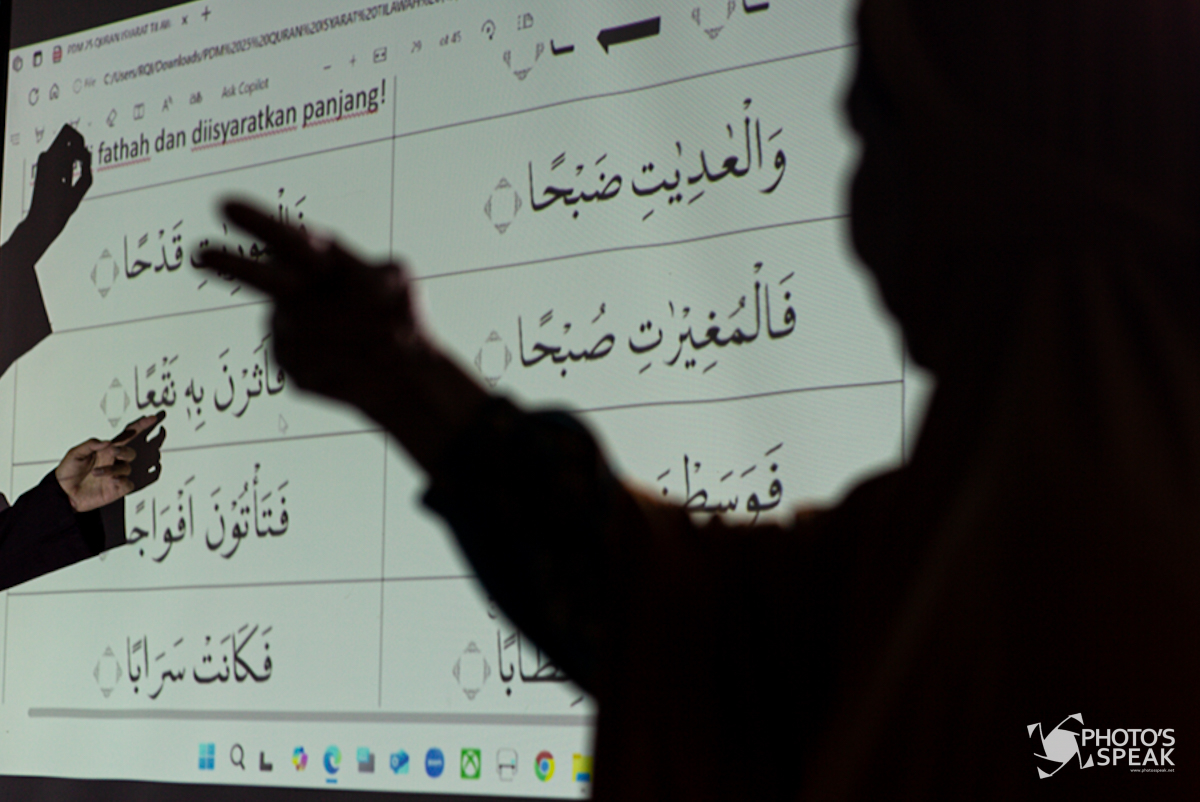 PDM 25 QURAN ISYARAT Til Ah
File C:/Users/RQI/Downloads/PDM%2025%20QURAN%20ISYARAT%20TILAWAH%
29 of 45
Ask Copilot
fathah dan diisyaratkan panjang!
وَالْعٰدِيٰتِ ضَبْحًا
قَدْحًا
فَالْمُغِيْرٰتِ صُبْحًا
فَاَثَرْنَ بِهٖ نَقْعًا
فَتَأْتُوْنَ اَفْوَاجًا
فَكَانَتْ سَرَابًا
PHOTO'S
SPEAK
www.photospeak.net